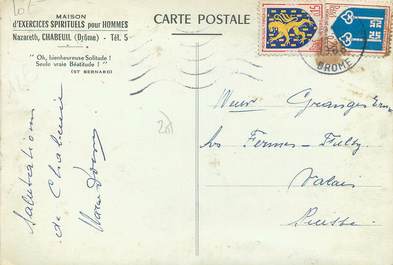 MAISON
d'EXERCICES SPIRITUELS pour HOMMES
Nazareth, CHABEUIL (Drôme) - Tél. 5
" Oh, bienheureuse Solitude !
Seule vraie Béatitude ! "
(ST BERNARD)
CARTE POSTALE
DROME
Salutations
de Chabeuil
Granges
Les Fermes - Fully
Valais
Suisse